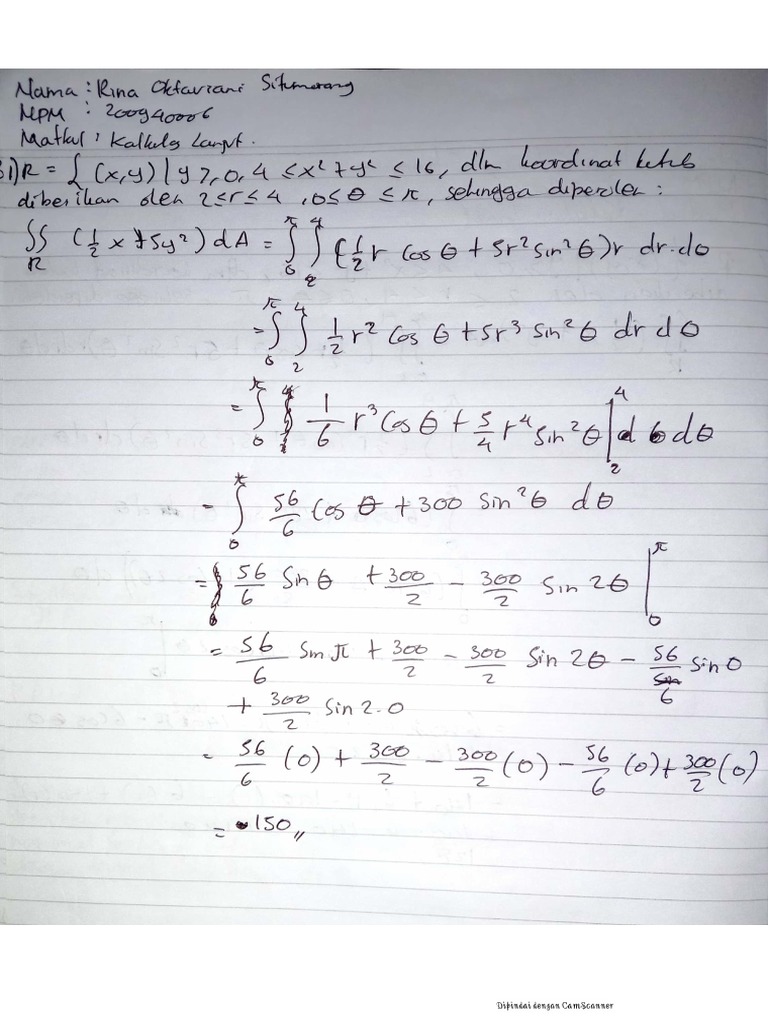 Nama : Rina Oktaviani Situmorang
NPM : 200940006
Matkul : Kalkulus Lanjut.
1) R = { (x,y) | y ≥, 0, 4 ≤ x² + y² ≤ 16, dlm koordinat kutub
diberikan oleh 2 ≤ r ≤ 4 , 0 ≤ θ ≤ π, sehingga diperoleh :
∬_R (1/2 x + 5y²) dA = ∫_0^π ∫_2^4 (1/2 r cos θ + 5r² sin² θ) r dr. dθ
= ∫_0^π ∫_2^4 1/2 r² cos θ + 5r³ sin² θ dr dθ
= ∫_0^π 1/6 r³ cos θ + 5/4 r⁴ sin² θ |_2^4 dθ
= ∫_0^π 56/6 cos θ + 300 sin² θ dθ
= 56/6 sin θ + 300/2 - 300/2 sin 2θ |_0^π
= 56/6 sin π + 300/2 - 300/2 sin 2θ - 56/6 sin 0
+ 300/2 sin 2.0
= 56/6 (0) + 300/2 - 300/2 (0) - 56/6 (0) + 300/2 (0)
= 150,,
Dipindai dengan CamScanner